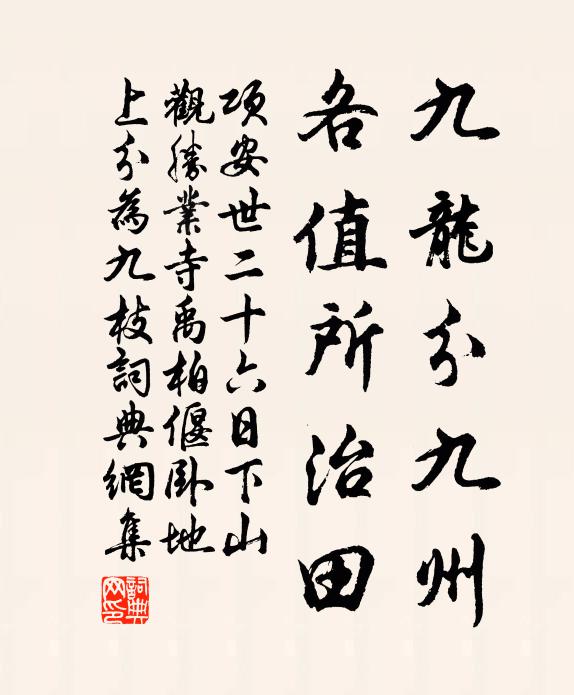 九龍分九州
各值所治田
項安世二十六日下山
觀勝業寺禹柏偃卧地
上分為九枝詞典網集
詞典
网印